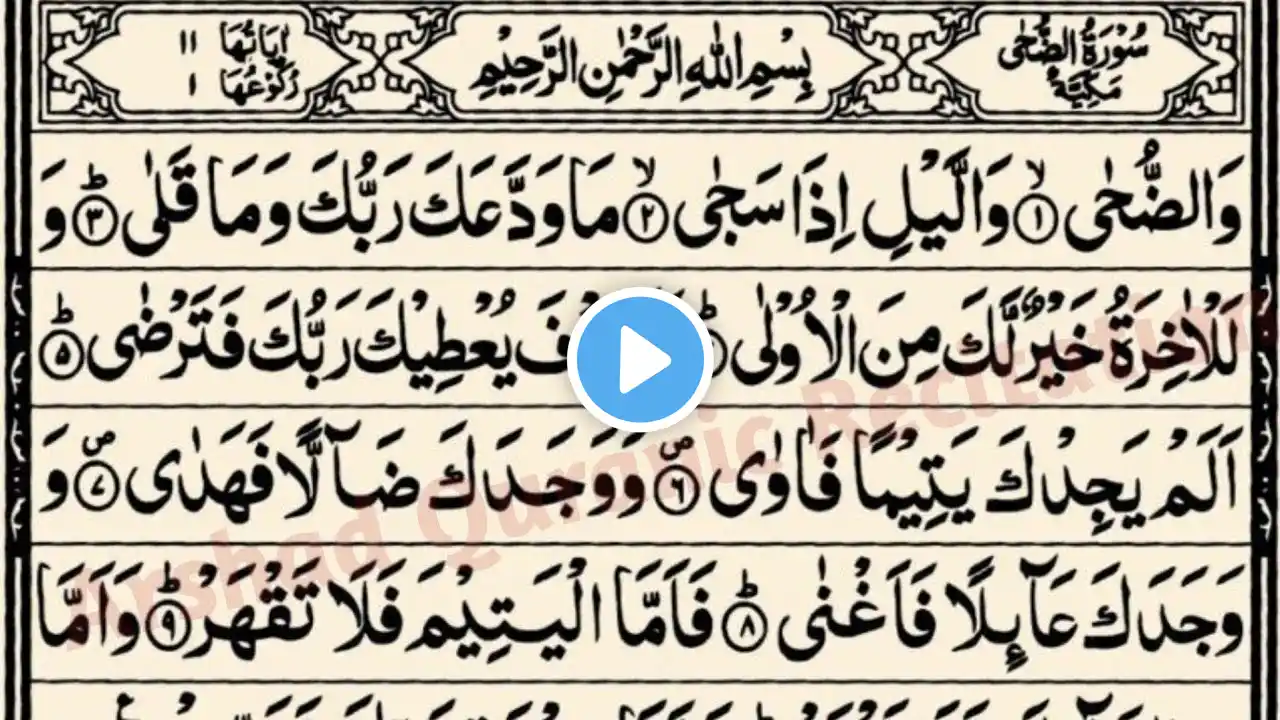 سُوْرَةُ الضُّحٰى مَكِّيَّةٌ
بِسْمِ اللّٰهِ الرَّحْمٰنِ الرَّحِيْمِ
اٰيَاتُهَا ١١
رُكُوْعُهَا ١
وَالضُّحٰى ۙ﴿١﴾ وَالَّيْلِ اِذَا سَجٰى ۙ﴿٢﴾ مَا وَدَّعَكَ رَبُّكَ وَمَا قَلٰى ؕ﴿٣﴾ وَ
لَلْاٰخِرَةُ خَيْرٌ لَّكَ مِنَ الْاُوْلٰى يُعْطِيْكَ رَبُّكَ فَتَرْضٰى ؕ﴿٥﴾
اَلَمْ يَجِدْكَ يَتِيْمًا فَاٰوٰى ۪﴿٦﴾ وَوَجَدَكَ ضَآلًّا فَهَدٰى ۪﴿٧﴾ وَ
وَجَدَكَ عَآئِلًا فَاَغْنٰى ؕ﴿٨﴾ فَاَمَّا الْيَتِيْمَ فَلَا تَقْهَرْ ؕ﴿٩﴾ وَاَمَّا
Arshad Quranic Recitation